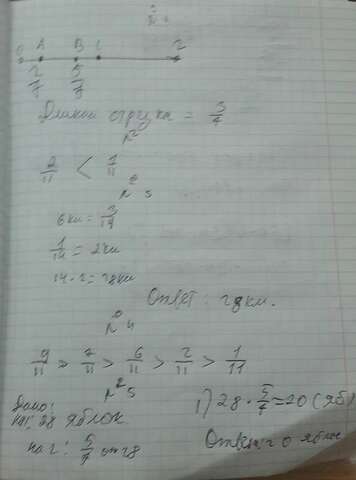 0 A B 1 2
2/7 5/7
Длина отрезка = 3/7
№2
2/11 < 7/11
№3
6 км = 3/14
1/14 = 2 км
14 · 2 = 28 км
Ответ: 28 км.
№4
9/11 > 7/11 > 6/11 > 2/11 > 1/11
№5
Дано:
28 яблок
на 2: 5/7 от 28
1) 28 · 5/7 = 20 (ябл
Ответ: 20 яблок